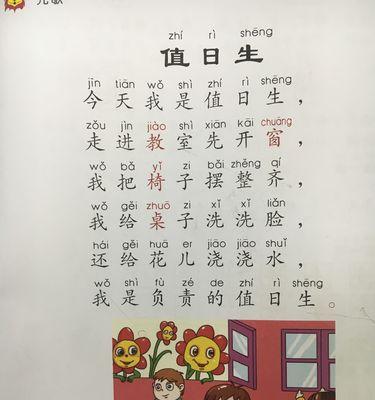 zhí rì shēng
值日生
jīn tiān wǒ shì zhí rì shēng
今天我是值日生，
zǒu jìn jiào shì xiān kāi chuāng
走进教室先开窗，
wǒ bǎ yǐ zi bǎi zhěng qí
我把椅子摆整齐，
wǒ gěi zhuō zi xǐ xǐ liǎn
我给桌子洗洗脸，
hái gěi huā er jiāo jiāo shuǐ
还给花儿浇浇水，
wǒ shì fù zé de zhí rì shēng
我是负责的值日生。